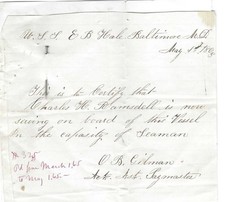 U. S. S. E. B. Hale Baltimore Md
May 5th 1865
This is to Certify that
Charles H. Ramsdell is now
serving on board of this Vessel
in the capacity of Seaman
C B. Gilman
Act. Ast. Paymaster
Pd from March 1. 65
to May 1. 65. -